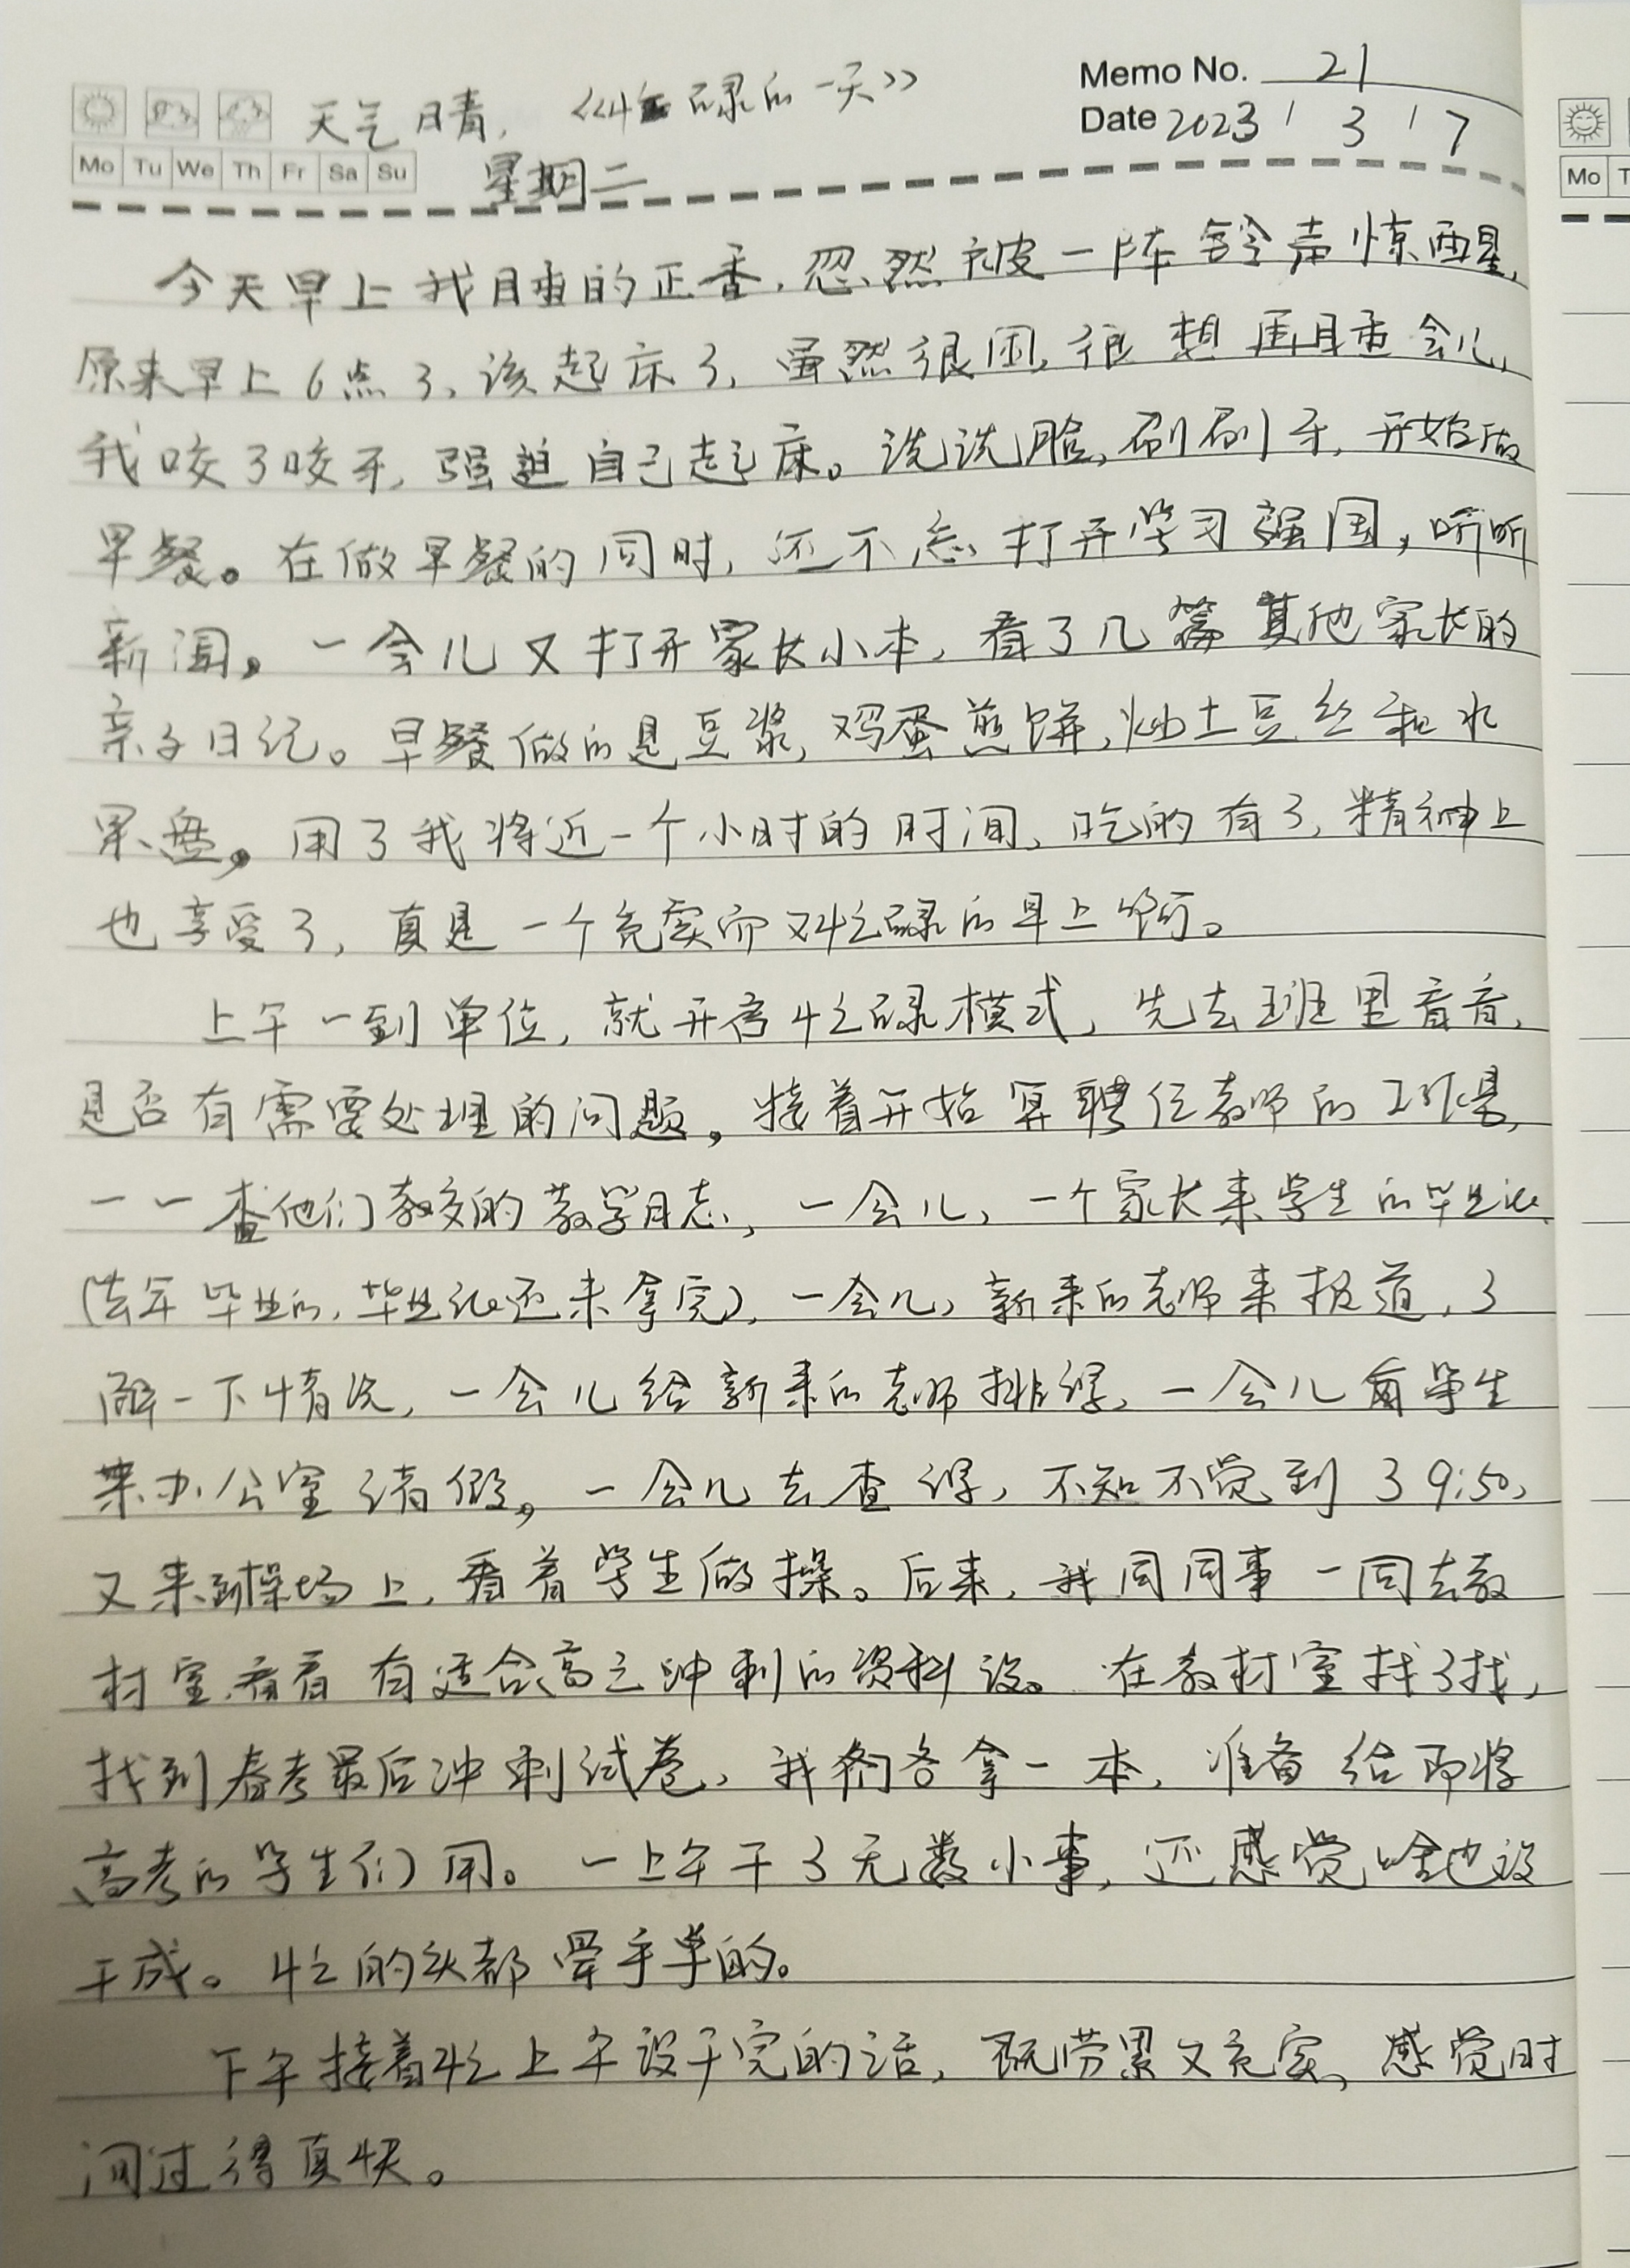 Memo No. 21
天气晴, 《忙碌的一天》
Date 2023 / 3 / 7
Mo Tu We Th Fr Sa Su
星期二
Mo T
今天早上我睡的正香,忽然被一阵铃声惊醒,
原来早上6点了,该起床了,虽然很困,很想再睡会儿,
我咬了咬牙,强迫自己起床。洗洗脸,刷刷牙,开始做
早餐。在做早餐的同时,还不忘打开学习强国,听听
新闻,一会儿又打开家长小本,看了几篇其他家长的
亲子日记。早餐做的是豆浆,鸡蛋煎饼,炒土豆丝和水
果盘,用了我将近一个小时的时间,吃的有了,精神上
也享受了,真是一个充实而又忙碌的早上啊。
上午一到单位,就开启忙碌模式,先去班里看看,
是否有需要处理的问题,接着开始算聘任教师的工作量,
一一查他们教交的教学日志,一会儿,一个家长来学生的毕业证
(去年毕业的,毕业证还未拿完),一会儿,新来的老师来报道,了
解一下情况,一会儿给新来的老师排课,一会儿有学生
来办公室请假,一会儿去查课,不知不觉到了9:50,
又来到操场上,看着学生做操。后来,我同同事一同去教
材室看看有适合高三冲刺的资料没。在教材室找了找,
找到春考最后冲刺试卷,我俩各拿一本,准备给即将
高考的学生们用。一上午干了无数小事,还感觉啥也没
干成。忙的头都晕乎乎的。
下午接着忙上午没干完的活,既劳累又充实,感觉时
间过得真快。